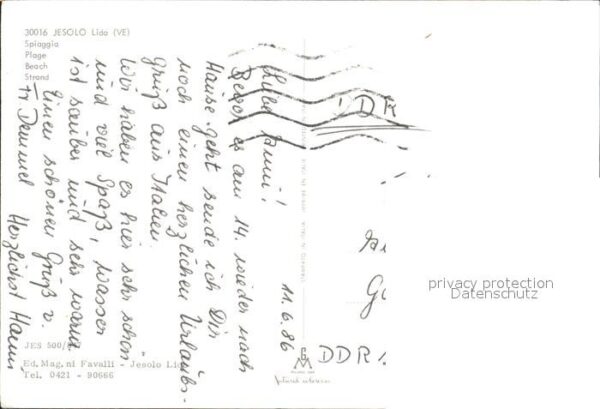 30016 JESOLO Lido (VE)
Spiaggia
Plage
Beach
Strand
11.6.86
Bevor es am 14. wieder nach
Hause geht sende ich Dir
noch einen herzlichen Urlaubs-
gruß aus Italien.
Wir haben es hier sehr schön
und viel Spaß, Wasser
ist sauber und sehr warm
Einen schönen Gruß v.
Fr Demmel Herzlichst Hanni
! DDR
DDR
JES 500/
Ed. Mag. ni Favalli - Jesolo Lido
Tel. 0421 - 90666
privacy protection
Datenschutz